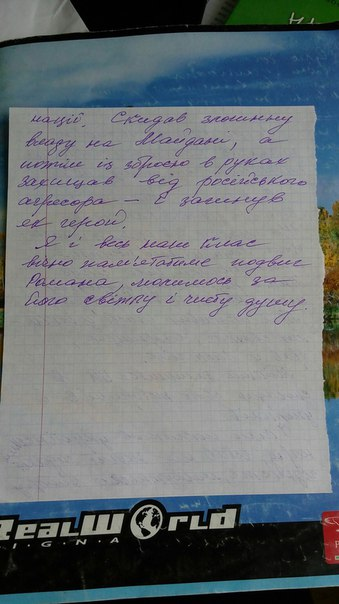 нації. Скидав злочинну
владу на Майдані, а
потім із зброєю в руках
захищав від російського
агресора – і загинув
як герой.
Я і весь наш клас
вічно пам'ятатиме подвиг
Романа, молимось за
його світлу і чисту душу.
REALWORLD
SIGNA